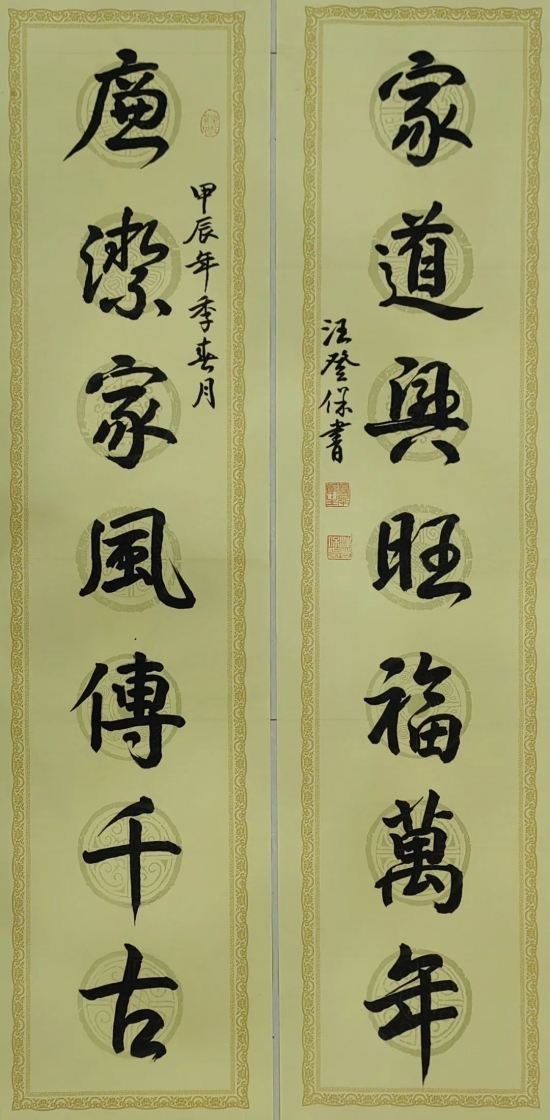 廉潔家風傳千古
甲辰年季春月
家道興旺福萬年
汪登保書